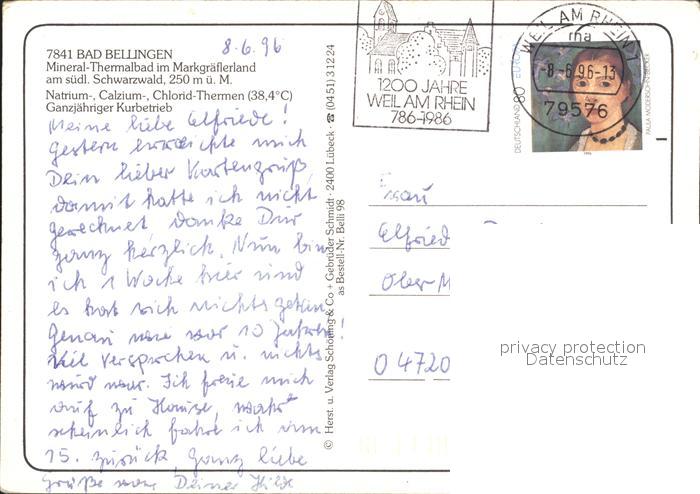 7841 BAD BELLINGEN
Mineral-Thermalbad im Markgräflerland
am südl. Schwarzwald, 250 m ü. M.
Natrium-, Calzium-, Chlorid-Thermen (38,4°C)
Ganzjähriger Kurbetrieb
8.6.96
Meine liebe Elfriede!
Gestern erreichte mich
Dein lieber Kartengruß,
damit hatte ich nicht
gerechnet, danke Dir
ganz herzlich. Nun bin
ich 1 Woche hier und
es hat sich nichts getan
Genau wie vor 10 Jahren!
Viel versprochen u. nichts
wird war. Ich freue mich
auf zu Hause, wahr
scheinlich fahre ich am
15. zurück ganz liebe
Grüße von Deiner Hilde
© Herst. u. Verlag Schöning & Co + Gebrüder Schmidt · 2400 Lübeck · ☎ (04 51) 3 12 24
as Bestell-Nr. Belli 98
1200 JAHRE
WEIL AM RHEIN
786-1986
WEIL AM RHEIN 1
ma
-8.-6.96-13
79576
DEUTSCHLAND 80 EUROPA
PAULA MODERSOHN-BECKER
1996
Frau
Elfried
Ober-M
O 4720
privacy protection
Datenschutz